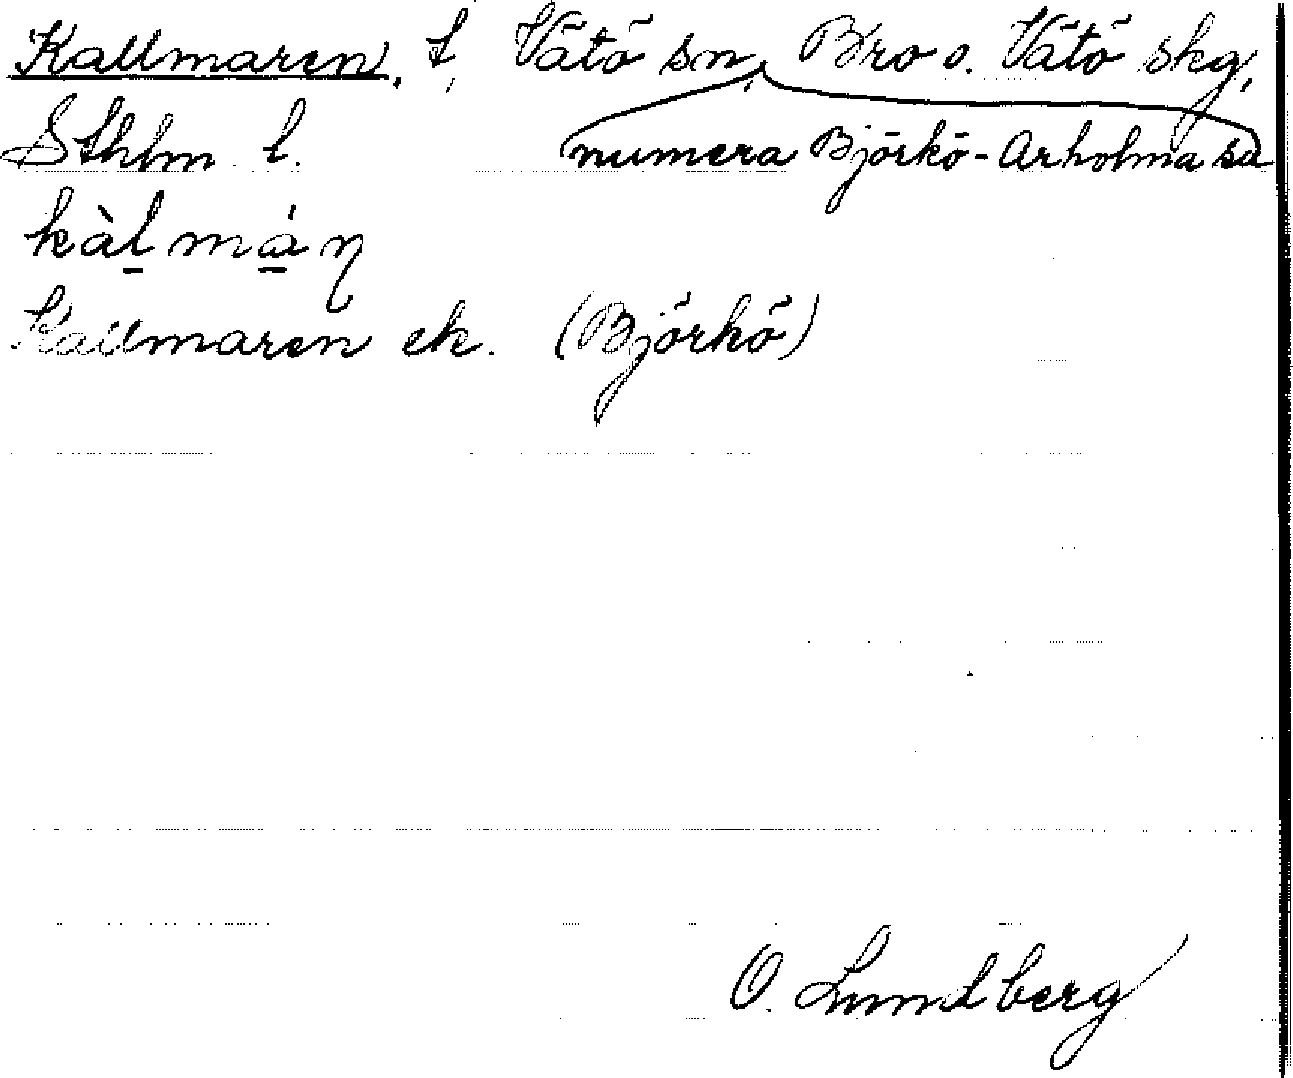 Kallmaren, f, Vätö sn, Bro o. Vätö skg,
Sthlm l. numera Björkö-Arholma sn
kàlmáɳ
Kallmaren ek. (Björkö)
O. Lundberg